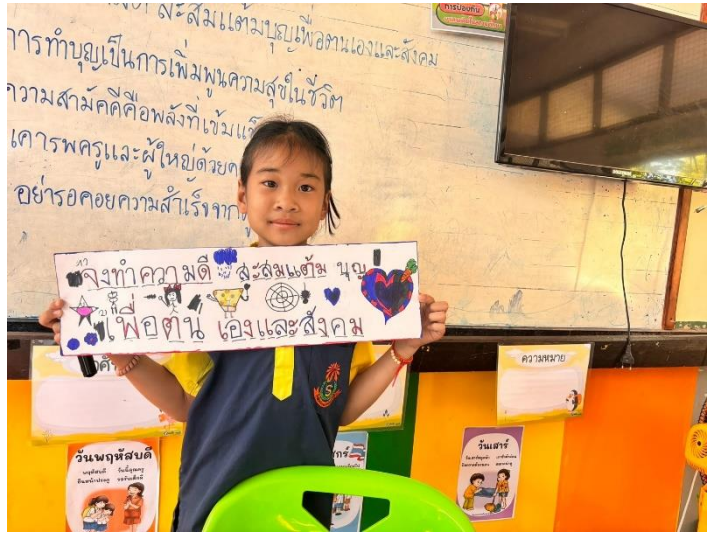 สะสมแต้มบุญเพื่อตนเองและสังคม
การทำบุญเป็นการเพิ่มพูนความสุขในชีวิต
ความสามัคคีคือพลังที่เข้มแข็
เคารพครูและผู้ใหญ่ด้วย
อย่ารอคอยความสำเร็จจาก
จงทำความดี สะสมแต้ม บุญ
เพื่อตน เองและสังคม
ความหมาย
วันพฤหัสบดี
วันเสาร์